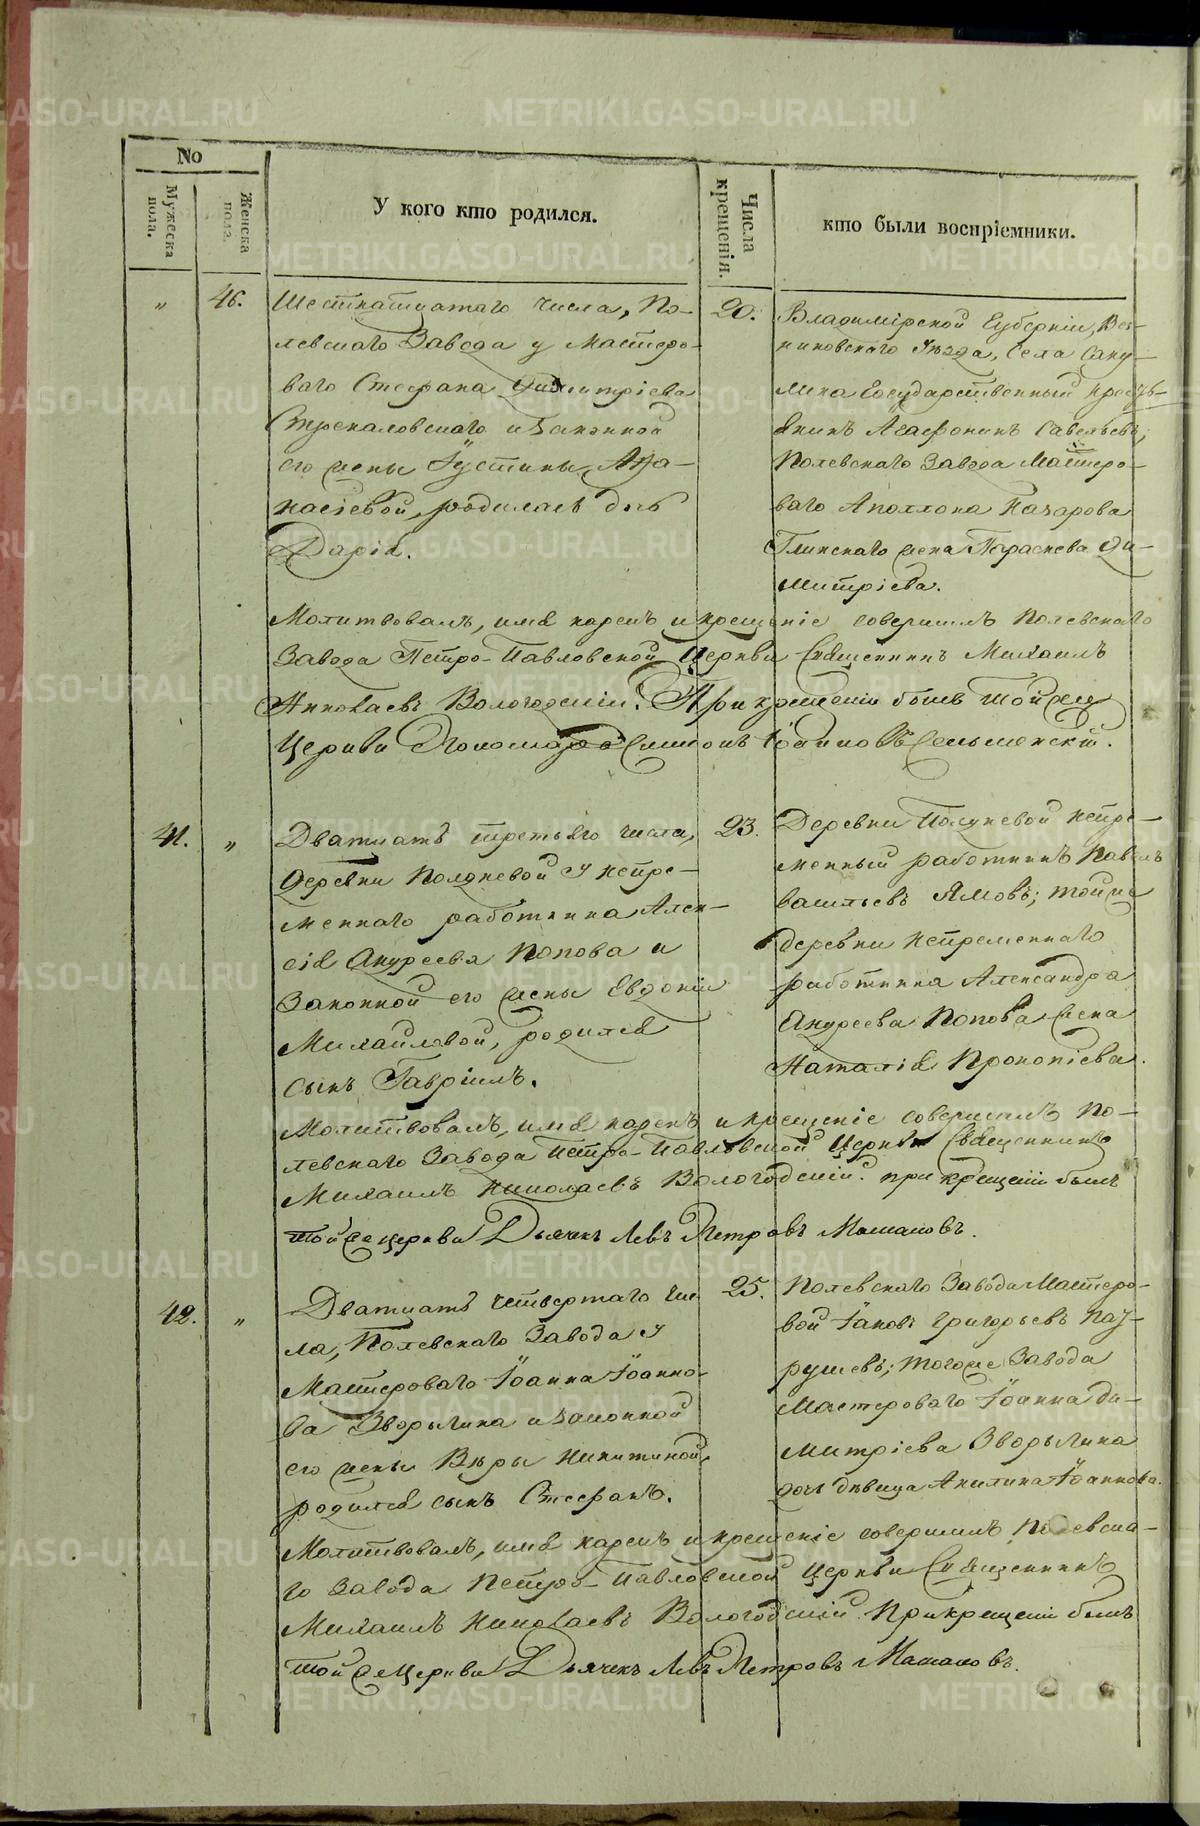 No
Мужеска пола.
Женска пола.
У кого кто родился.
Числа крещенія.
кто были воспріемники.
" 46.
Шестнатцатаго числа, По-
левскаго Завода у Мастеро-
ваго Стефана Димитріева
Стрекаловскаго и законной
его жены Іустины Афа-
насіевой, родилась дочь
Дарія.
20.
Владимірской Губерніи, Вяз-
никовскаго Уѣзда, Села
Государственный кресть-
янинъ Агафоникъ Савельевъ;
Полевскаго Завода Мастеро-
ваго Аполлона Назарова
Глинскаго жена Параскева Ди-
митріева.
Молитвовалъ, имя нарекъ и крещеніе совершилъ Полевскаго
Завода Петро-Павловской Церкви Священникъ Михаилъ
Николаевъ Вологодскій. При крещеніи былъ той же
Церкви Пономарь Симонъ Іоанновъ
41. "
Дватцать третьяго числа,
Деревни Полдневой у непре-
меннаго работника Алек-
сія Андреева Попова и
Законной его жены Евдокіи
Михайловой, родился
сынъ Гавріилъ.
23.
Деревни Полдневой непре-
менный работникъ Павелъ
Васильевъ Ямовъ; той же
деревни непременнаго
работника Александра
Андреева Попова жена
Наталія Прокопіева.
Молитвовалъ, имя нарекъ и крещеніе совершилъ По-
левскаго Завода Петро-Павловской Церкви Священникъ
Михаилъ Николаевъ Вологодскій. при крещеніи былъ
той же церкви Дьячекъ Левъ Петровъ
42. "
Дватцать четвертаго чис-
ла, Полевскаго Завода у
Мастероваго Іоанна Іоанно-
ва Зворыгина и законной
его жены Вѣры Никитиной,
родился сынъ Стефанъ.
25.
Полевскаго Завода Мастеро-
вой Іаковъ Григорьевъ Пау-
рушевъ; тогоже Завода
Мастероваго Іоанна Ди-
митріева Зворыгина
дочь дѣвица Акилина Іоаннова.
Молитвовалъ, имя нарекъ и крещеніе совершилъ Полевска-
го Завода Петро-Павловской Церкви Священникъ
Михаилъ Николаевъ Вологодскій. При крещеніи былъ
той же Церкви Дьячекъ Левъ Петровъ
METRIKI.GASO-URAL.RU